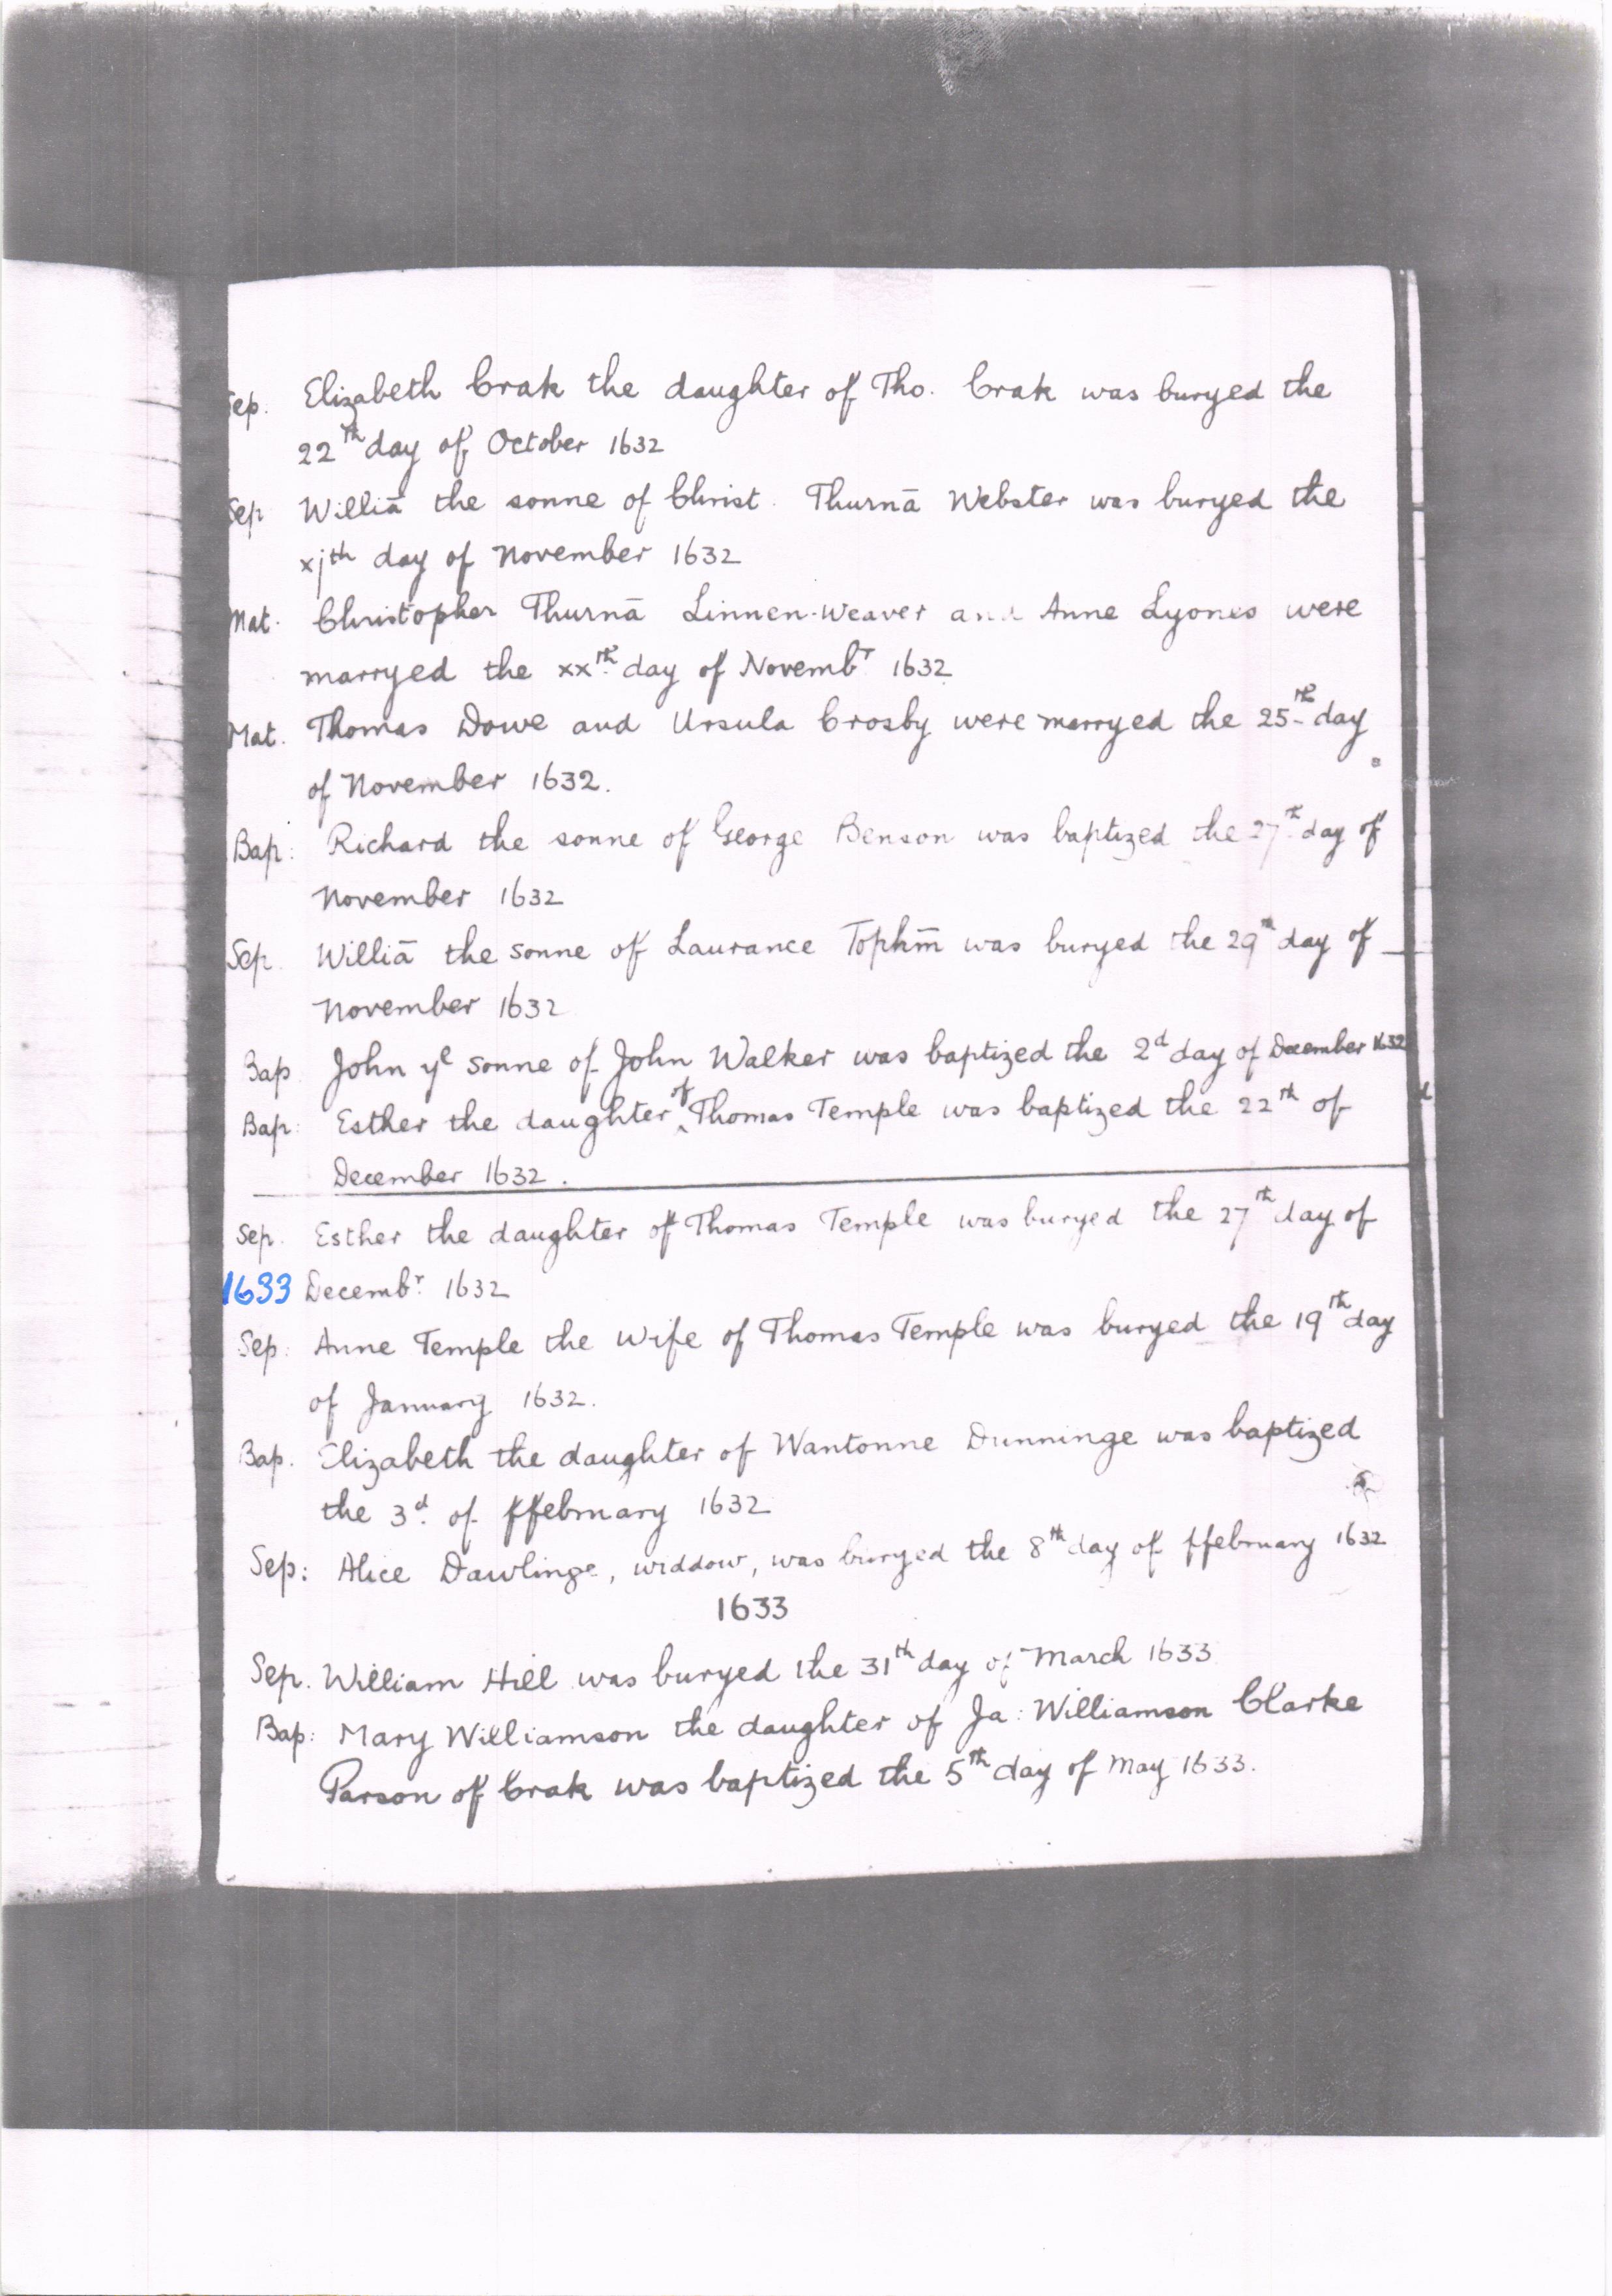 Sep. Elizabeth Crak the daughter of Tho. Crak was buryed the
22th day of October 1632
Sep Williā the sonne of Christ. Thurnā Webster was buryed the
xjth day of November 1632
Mat. Christopher Thurnā Linnen-Weaver and Anne Lyones were
marryed the xxth day of Novembr 1632
Mat. Thomas Dowe and Ursula Crosby were marryed the 25th day
of November 1632.
Bap: Richard the sonne of George Benson was baptized the 27th day of
November 1632
Sep. Williā the sonne of Laurance Tophm̄ was buryed the 29th day of
November 1632
Bap John ye sonne of John Walker was baptized the 2d day of December 1632
Bap: Esther the daughter of Thomas Temple was baptized the 22th of
December 1632.
Sep. Esther the daughter of Thomas Temple was buryed the 27th day of
1633 Decembr: 1632
Sep: Anne Temple the wife of Thomas Temple was buryed the 19th day
of January 1632.
Bap. Elizabeth the daughter of Wantonne Dunninge was baptized
the 3d. of ffebruary 1632
Sep: Alice Dawlinge, widdow, was buryed the 8th day of ffebruary 1632
1633
Sep. William Hill was buryed the 31th day of March 1633
Bap: Mary Williamson the daughter of Ja: Williamson Clarke
Parson of Crak was baptized the 5th day of May 1633.